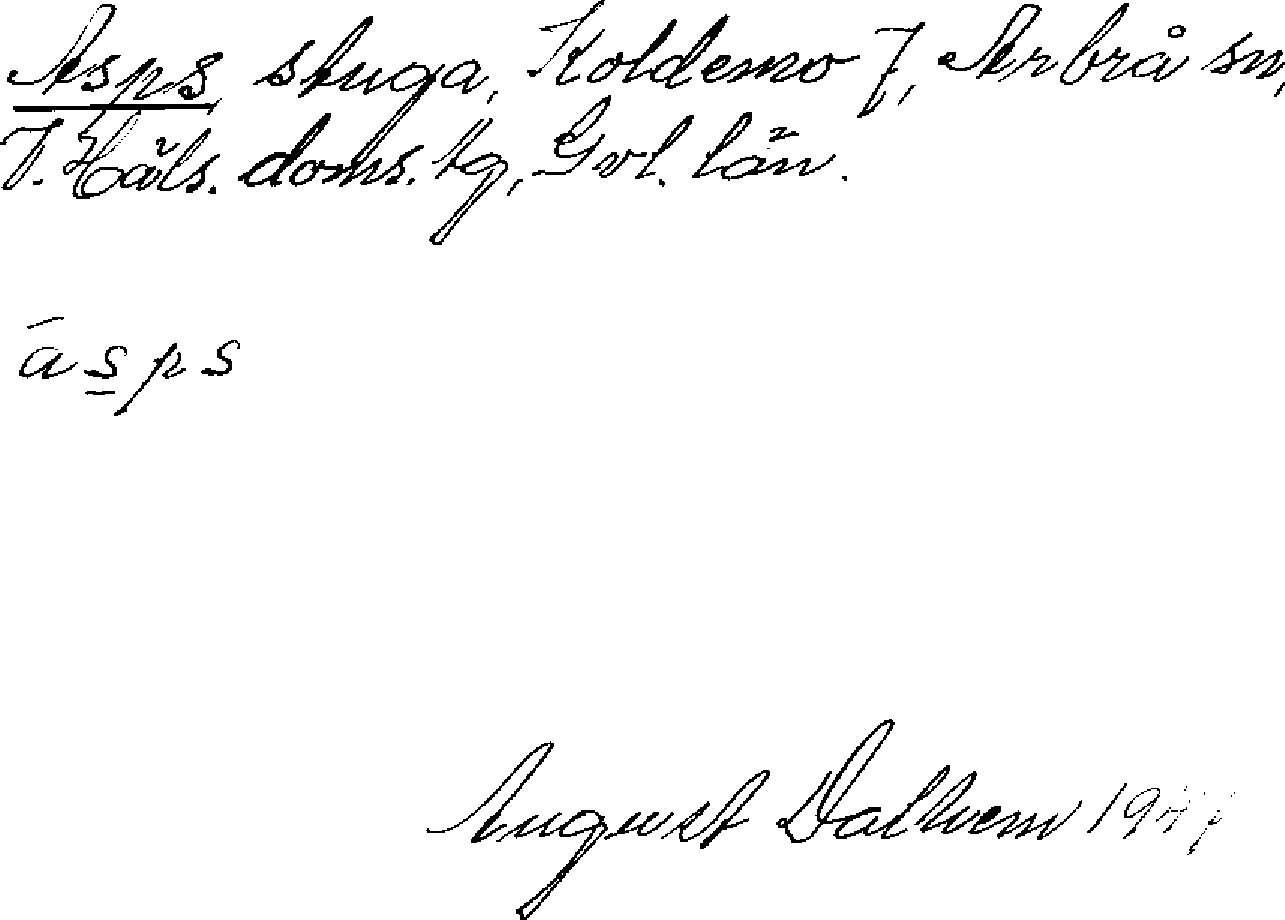 Asps stuga, Koldemo 7, Arbrå sn,
V. Häls. doms. tg, Gvl. län.
āsps
August Dalhem